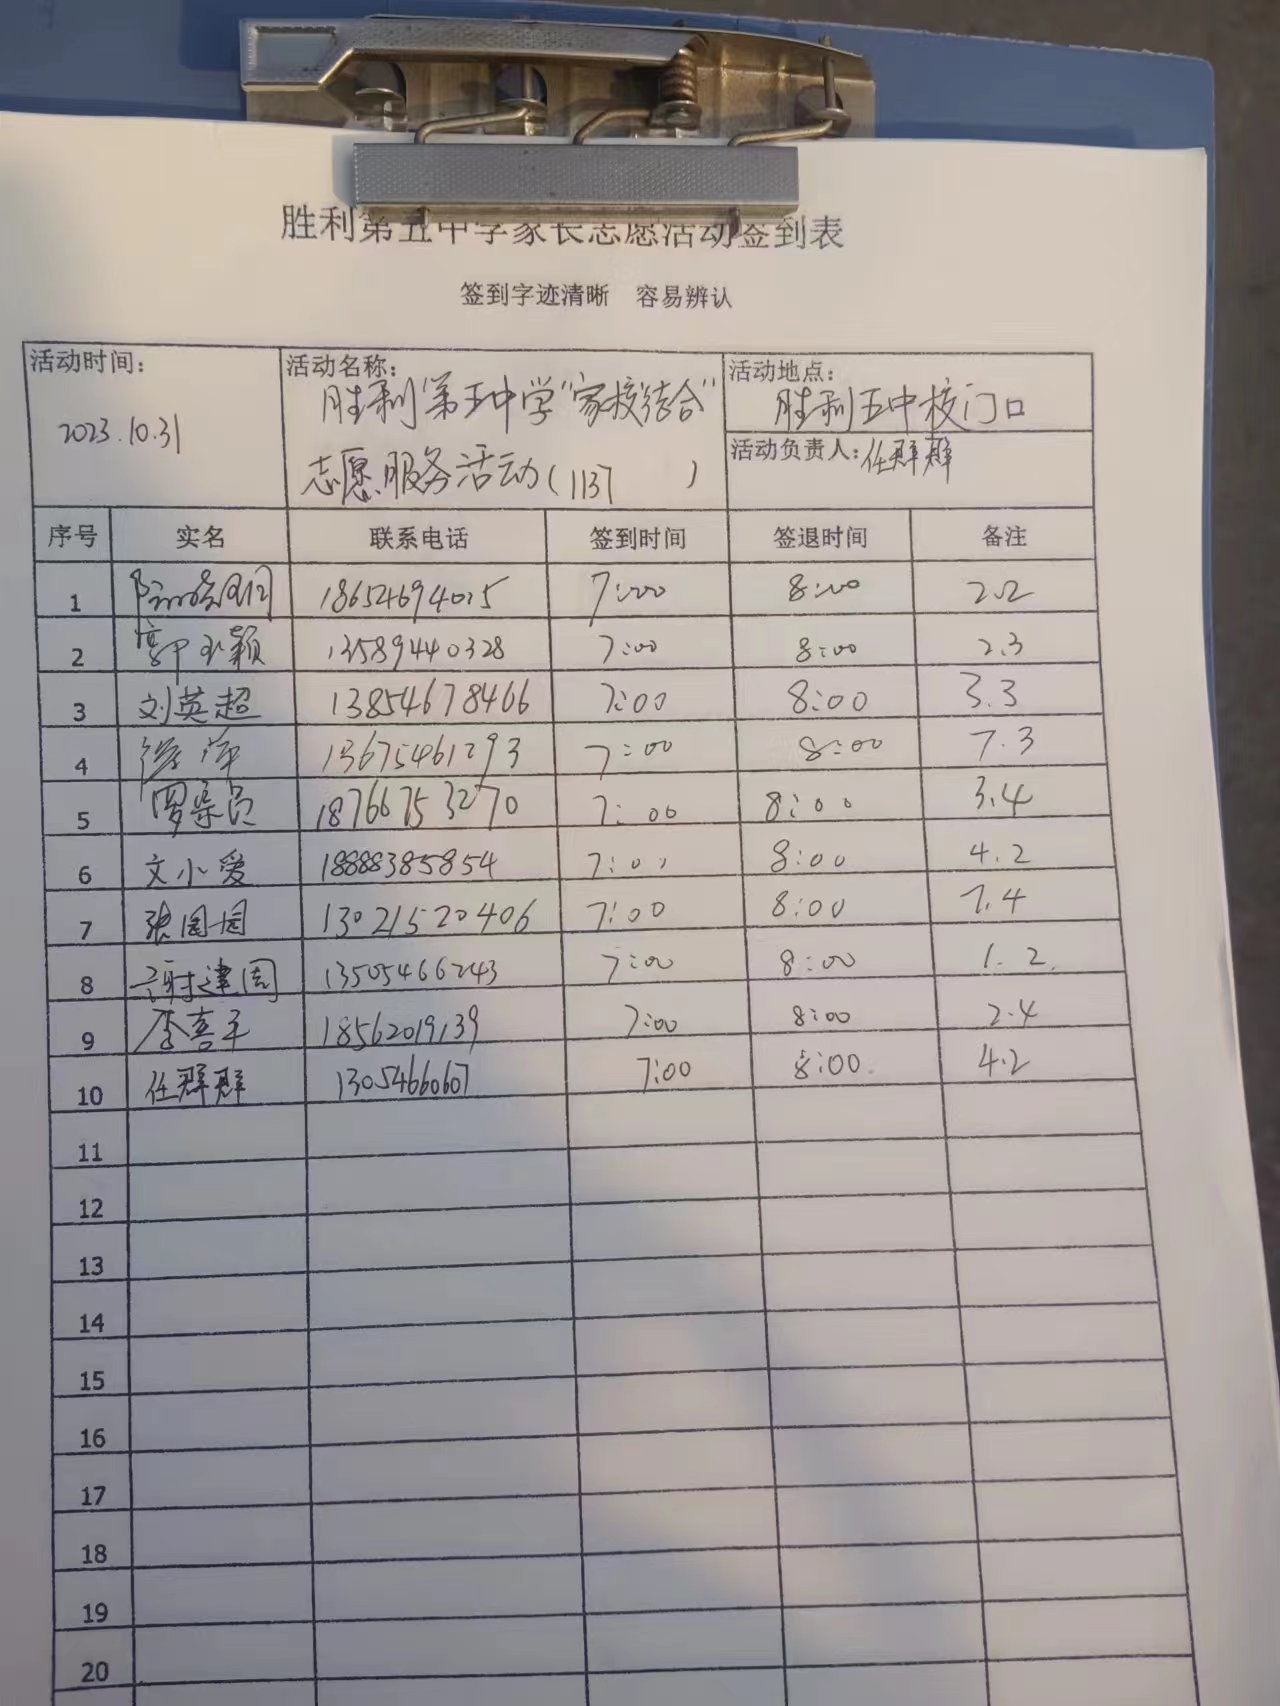 胜利第五中学家长志愿活动签到表
签到字迹清晰 容易辨认
活动时间: 2023.10.31
活动名称: 胜利第五中学“家校结合”
志愿服务活动(1137 )
活动地点: 胜利五中校门口
活动负责人: 任群群
序号 实名 联系电话 签到时间 签退时间 备注
1 18654694015 7:00 8:00 2.2
2 郭玉颖 13589440328 7:00 8:00 2.3
3 刘英超 13854678466 7:00 8:00 3.3
4 13675461293 7:00 8:00 7.3
5 18766753270 7:00 8:00 3.4
6 文小爱 18888385854 7:00 8:00 4.2
7 张园园 13021520406 7:00 8:00 7.4
8 谢建周 13505466243 7:00 8:00 1.2
9 李喜平 18562019139 7:00 8:00 2.4
10 任群群 13054660607 7:00 8:00 4.2
11
12
13
14
15
16
17
18
19
20